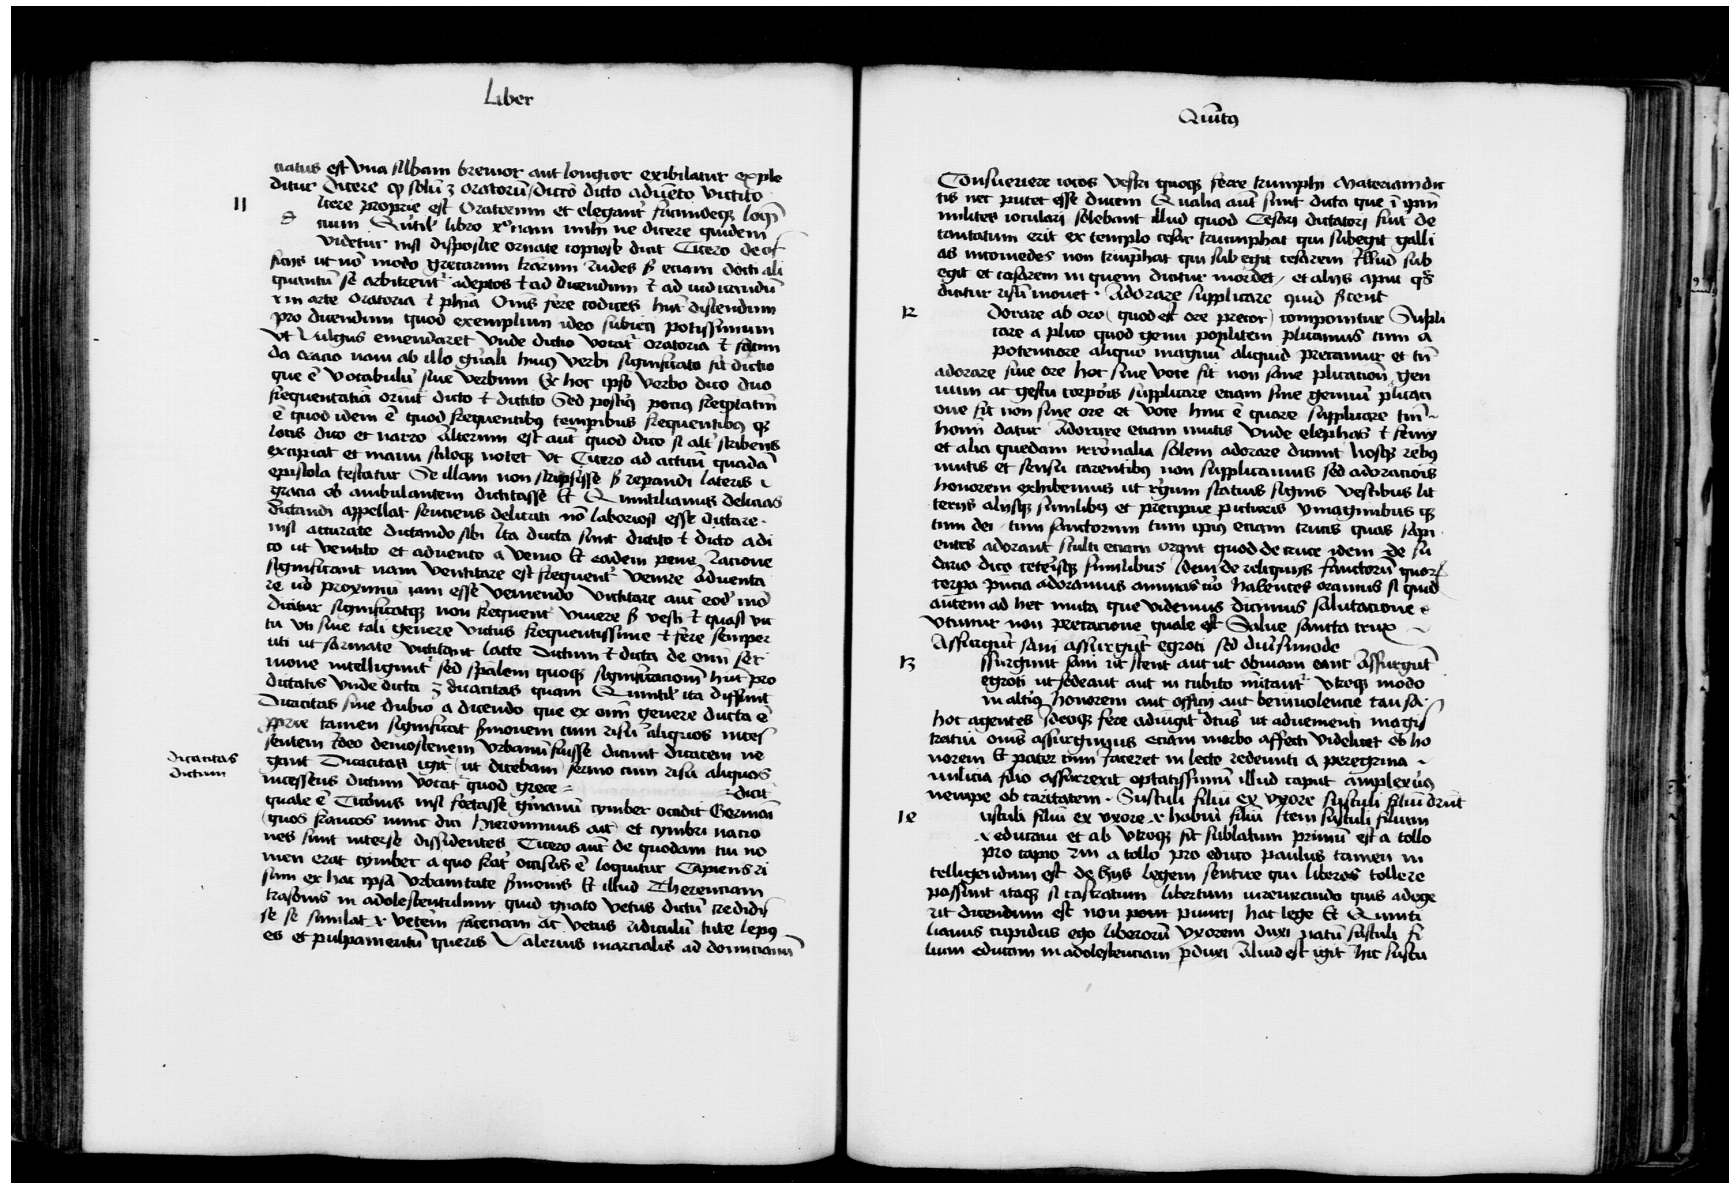 Liber
ciatus est una sillbam brevior aut longior exibilatur exple
ditur Dicere qȝ solū ȝ oratorū dicto dicto advēto victito
11
icere proprie est Oratorum et eleganť facundeqȝ loqͥ
cium Quītiľ libro xº nam mihi ne dicere quidem
videtur nisi disposite ornate copiose dicit Cicero de of
ficijs ut nō modo grecarum lrarum rudes sȝ etiam docti ali
quantū se arbitrenť adeptos ⁊ ad dicendum ⁊ ad iudicandū
x in arte oratoria ⁊ phia Oms fere codices hnt discendum
pro dicendum quod exemplum ideo subieci potissimum
ut vulgus emendaret unde dictio vocať oratoria ⁊ sctim
da oracio nam ab illo gnali huiꝰ verbi significato fit dictio
que ē vocabulū sive verbum Ex hoc ipso verbo dico duo
frequentatīa oriunť dicto ⁊ dictito Sed
ē quod idem ē quod frequentibus tempibus frequentibꝰ qȝ
locis dico et narro Alterum est aut quod dico si alť scribens
excipiat et manu stiloqȝ notet ut Cicero ad atticū quadā
epistola testatur Se illam non scripsisse sȝ repandi lateris
gracia ob ambulantem dictitasse Et Quintilianus delicias
dictandi appellat senciens delicati nō laboriosi esse dictare
nisi accurate dictando sibi Ita dicta sunt dictito ⁊ dicto a di
co ut ventito et advento a venio Et eadem pene racione
significant nam ventitare est frequenť venire adventa
re uº proximū iam esse veniendo victitare aut eodē mō
dicitur significatqȝ non frequenť vivere sȝ vesci ⁊ quasi vic
tu uti sive tali genere victus frequentissime ⁊ fere semper
uti ut sarmate victitant lacte Dictum ⁊ dicta de omī ser
mone intelligunť sed spalem quoqȝ significacionem hnt pro
dictatis unde dicta ȝ dicacitas quam Quintiľ ita diffinit
Dicacitas sine dubio a dicendo que ex omī genere dicta ē
prie tamen significat sermonem cum risū aliquos inces
sentem Ideo demostenem urbanū fuisse dicunt dicacem ne
gant Dicacitas igiť (ut dicebam) sermo cum risu aliquos
Dicacitas
dictum
incessens dictum vocať quod grece = = dicit
quale ē Ciceronis nisi foetasse gmanū cymber occidit Germāi
(quos francos nunc dici hieronimus ait) et cymbri nacio
nes sunt inter se dissidentes Cicero aut de quodam cui no
men erat cymber a quo frať occisus ē loquitur Capiens ri
sum ex hac ipsa urbanitate sermonis Et illud Therencianū
trasonis in adolescentulum quid gnato vetus dictū credidi
se se similat x vetem faceciam ac vetus ridiculū tute lepꝰ
es et pulpamentū queris Valerius marcialis ad domicianū
Quītꝰ
Consueriere iocos vestri quoqȝ ferre triumphi Materiam dic
tis nec putet esse ducem Qualia aut sunt dicta que ī ipm
milites ioculari solebant illud quod Cesari dictatori fuit de
cantatum erit ex templo cesar triumphat qui subegit galli
as nicomedes non triūphat qui subegit cesarem Illud sub
egit et cesarem in quem dicitur mordet et alijs apud qͦs
dicitur risū movet · Adorare supplicare quid sctent
12
dorare ab oro (quod est ore precor) componitur Supli
care a plico quod genu poplitem plicamus cum a
potenciore aliquo magnū aliquid precamur et tn
adorare sine ore hoc sine voce fit non sane plicacioē gen
uum ac gestu corpois supplicare etiam sine genuū plicaci
one fit non sine ore et voce hinc ē quare supplicare tm
homi datur Adorare etiam mutis unde elephas ⁊ fenix
et alia quedam irrōnalia solem adorare dicunť hosqȝ rebꝰ
mutis et sensu carentibꝰ non supplicamus sed adoraciois
honorem exhibemus ut rgum statuis signis vestibus lit
teris alijsqȝ similibꝰ et precipue picturis ymaginibus qȝ
cum dei tum sanctorum tum ipius etiam crucis quas sapi
entes adorant stulti etiam orant quod de cruce idem de su
dario dico ceterisqȝ similibus Idem de reliquijs sanctorū quor
corpa prīcia adoramus animas uº habentes oramus si quid
autem ad hec muta que videmus dicimus salutacione
utimur non precacione quale est Salve sancta crux
Assurgūt sani assurgūt egroti sed diusimode
13
ssurgunt sani ut stent aut ut obviam eant Assurgūt
egroti ut sedeant aut in cubito nītantť utroqȝ modo
in altiꝰ honorem aut officij aut benivolencie causa
hoc agentes Ideoqȝ fere adiūgiť dtūs ut advenienti magis
tratui omīs assurgimus etiam morbo affecti videlicet ob ho
norem Et pater cum iaceret in lecto redeunti a peregrina
milicia filio assurrexit optatissimū illud caput amplexūs
nempe ob caritatem · Sustuli filiū ex uxore sustuli filiū drūt
14
ustuli filiū ex uxore x habui filiū Item sustuli filium
x educavi et ab utroqȝ fit sublatum primū est a tollo
pro capio a tollo pro educo paulus tamen in
telligendum est de hijs legem sentire qui liberos tollere
possunt itaqȝ si castratum libertum iureiurando quis adege
rit dicendum est non pont puniri hac lege Et Quinti
lianus cupidus ego liberorū uxorem duxi natū sustuli fi
lium educatum in adolescenciam pduxi Aliud est igiť hic sustu